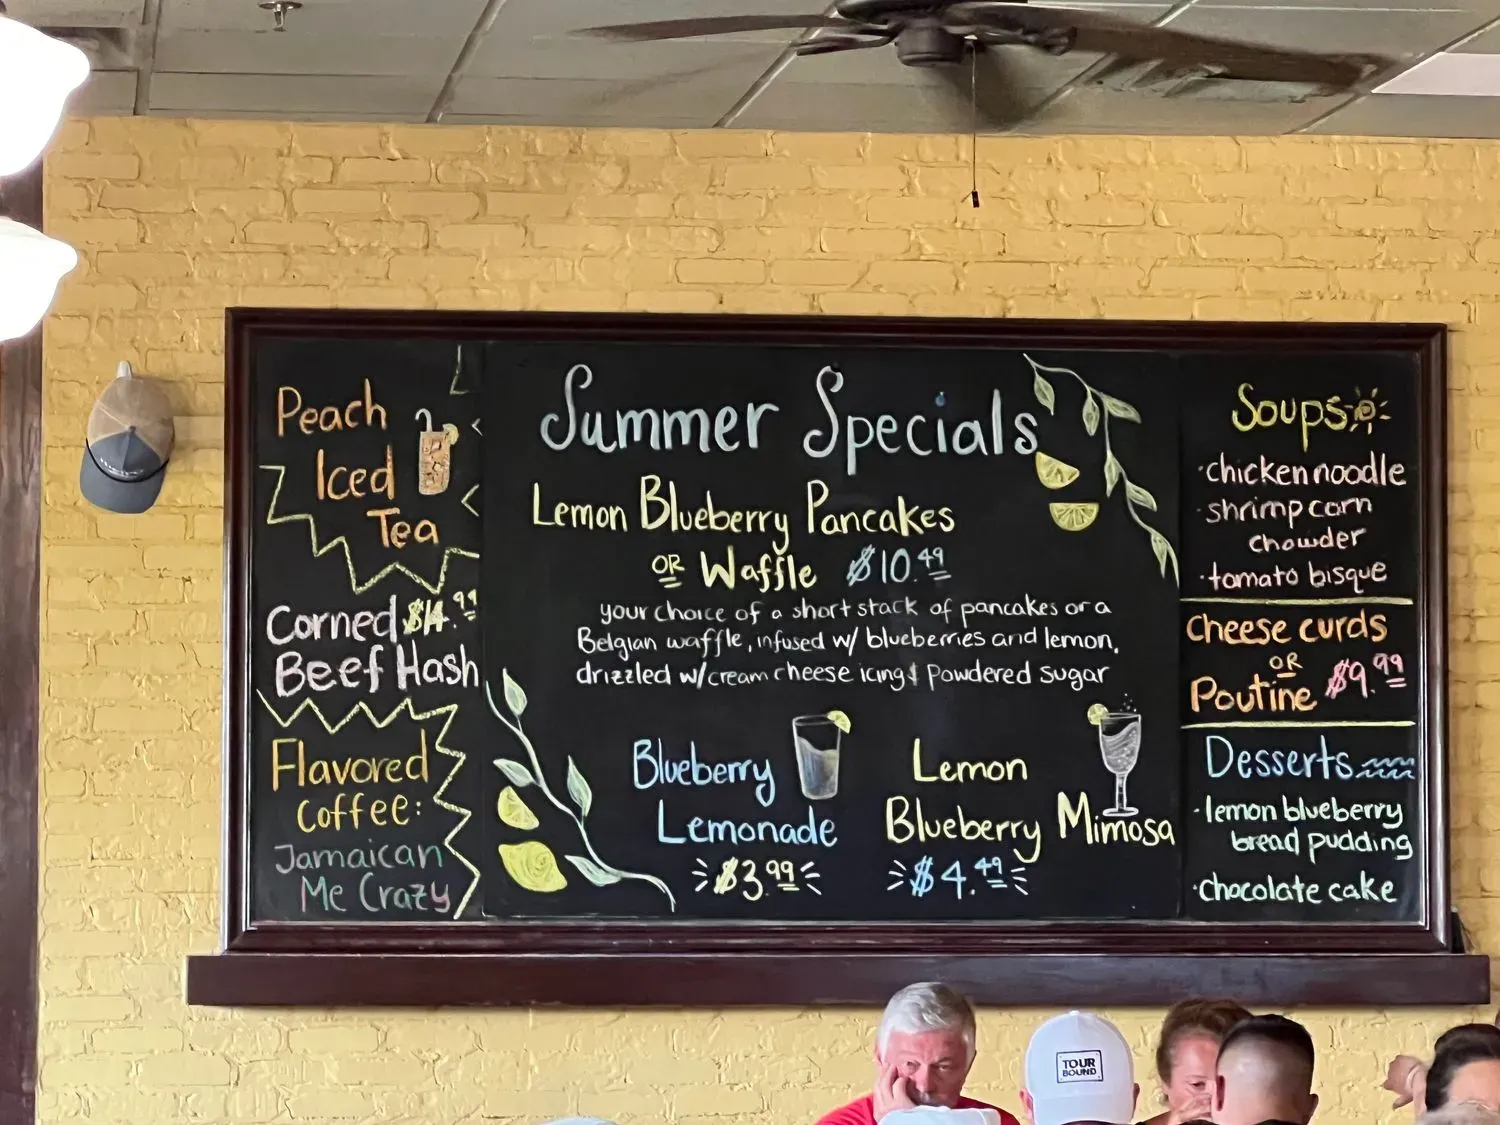 Peach
Iced
Tea
Corned $14.99
Beef Hash
Flavored
Coffee:
Jamaican
Me Crazy
Summer Specials
Lemon Blueberry Pancakes
OR Waffle $10.49
your choice of a short stack of pancakes or a
Belgian waffle, infused w/ blueberries and lemon,
drizzled w/cream cheese icing & powdered sugar
Blueberry
Lemonade
$3.99
Lemon
Blueberry Mimosa
$4.49
Soups
·chicken noodle
·shrimp corn
chowder
·tomato bisque
Cheese curds
OR
Poutine $9.99
Desserts
·lemon blueberry
bread pudding
·chocolate cake
TOUR
BOUND